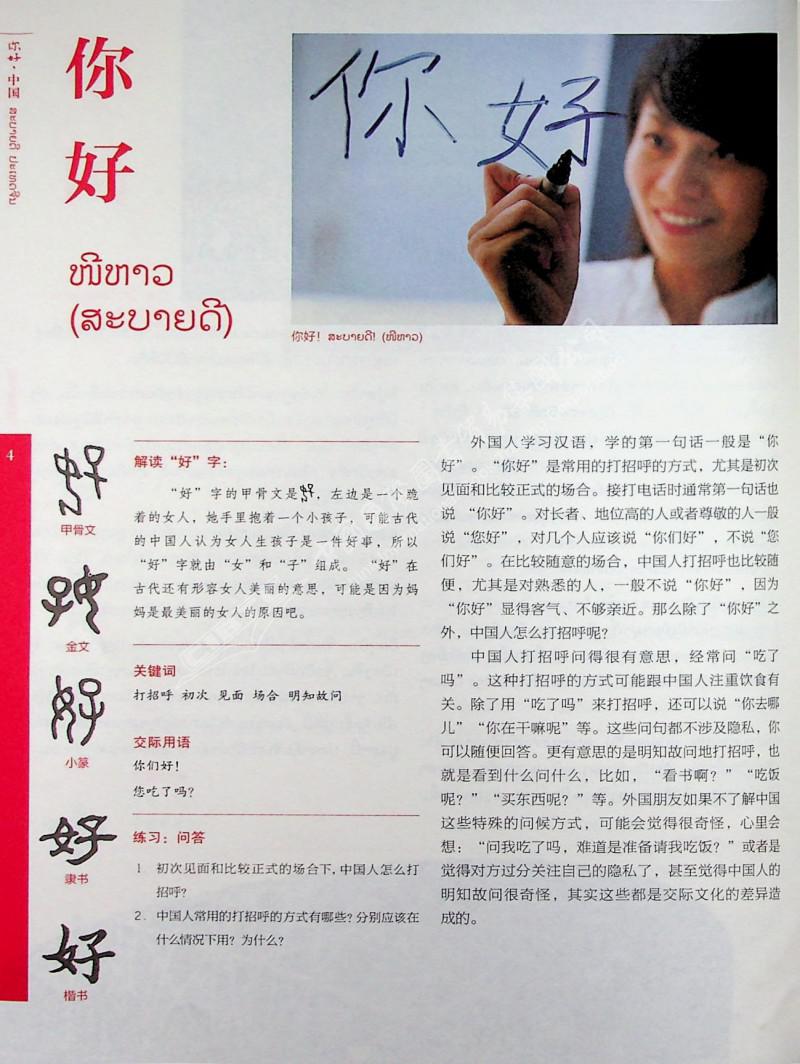 你好·中国 ສະບາຍດີ ປະເທດຈີນ
你
好
ໜີຫາວ
(ສະບາຍດີ)
你好
你好！ ສະບາຍດີ! (ໜີຫາວ)
4
甲骨文
金文
小篆
好
隶书
好
楷书
解读“好”字：
“好”字的甲骨文是，左边是一个跪
着的女人，她手里抱着一个小孩子，可能古代
的中国人认为女人生孩子是一件好事，所以
“好”字就由“女”和“子”组成。 “好”在
古代还有形容女人美丽的意思，可能是因为妈
妈是最美丽的女人的原因吧。
关键词
打招呼 初次 见面 场合 明知故问
交际用语
你们好！
您吃了吗？
练习：问答
1. 初次见面和比较正式的场合下，中国人怎么打
招呼？
2. 中国人常用的打招呼的方式有哪些？分别应该在
什么情况下用？为什么？
外国人学习汉语，学的第一句话一般是“你
好”。“你好”是常用的打招呼的方式，尤其是初次
见面和比较正式的场合。接打电话时通常第一句话也
说 “你好”。对长者、地位高的人或者尊敬的人一般
说“您好”，对几个人应该说“你们好”，不说“您
们好”。在比较随意的场合，中国人打招呼也比较随
便，尤其是对熟悉的人，一般不说“你好”，因为
“你好”显得客气、不够亲近。那么除了“你好”之
外，中国人怎么打招呼呢？
中国人打招呼问得很有意思，经常问“吃了
吗”。这种打招呼的方式可能跟中国人注重饮食有
关。除了用“吃了吗”来打招呼，还可以说“你去哪
儿”“你在干嘛呢”等。这些问句都不涉及隐私，你
可以随便回答。更有意思的是明知故问地打招呼，也
就是看到什么问什么，比如，“看书啊？”“吃饭
呢？”“买东西呢？”等。外国朋友如果不了解中国
这些特殊的问候方式，可能会觉得很奇怪，心里会
想：“问我吃了吗，难道是准备请我吃饭？”或者是
觉得对方过分关注自己的隐私了，甚至觉得中国人的
明知故问很奇怪，其实这些都是交际文化的差异造
成的。